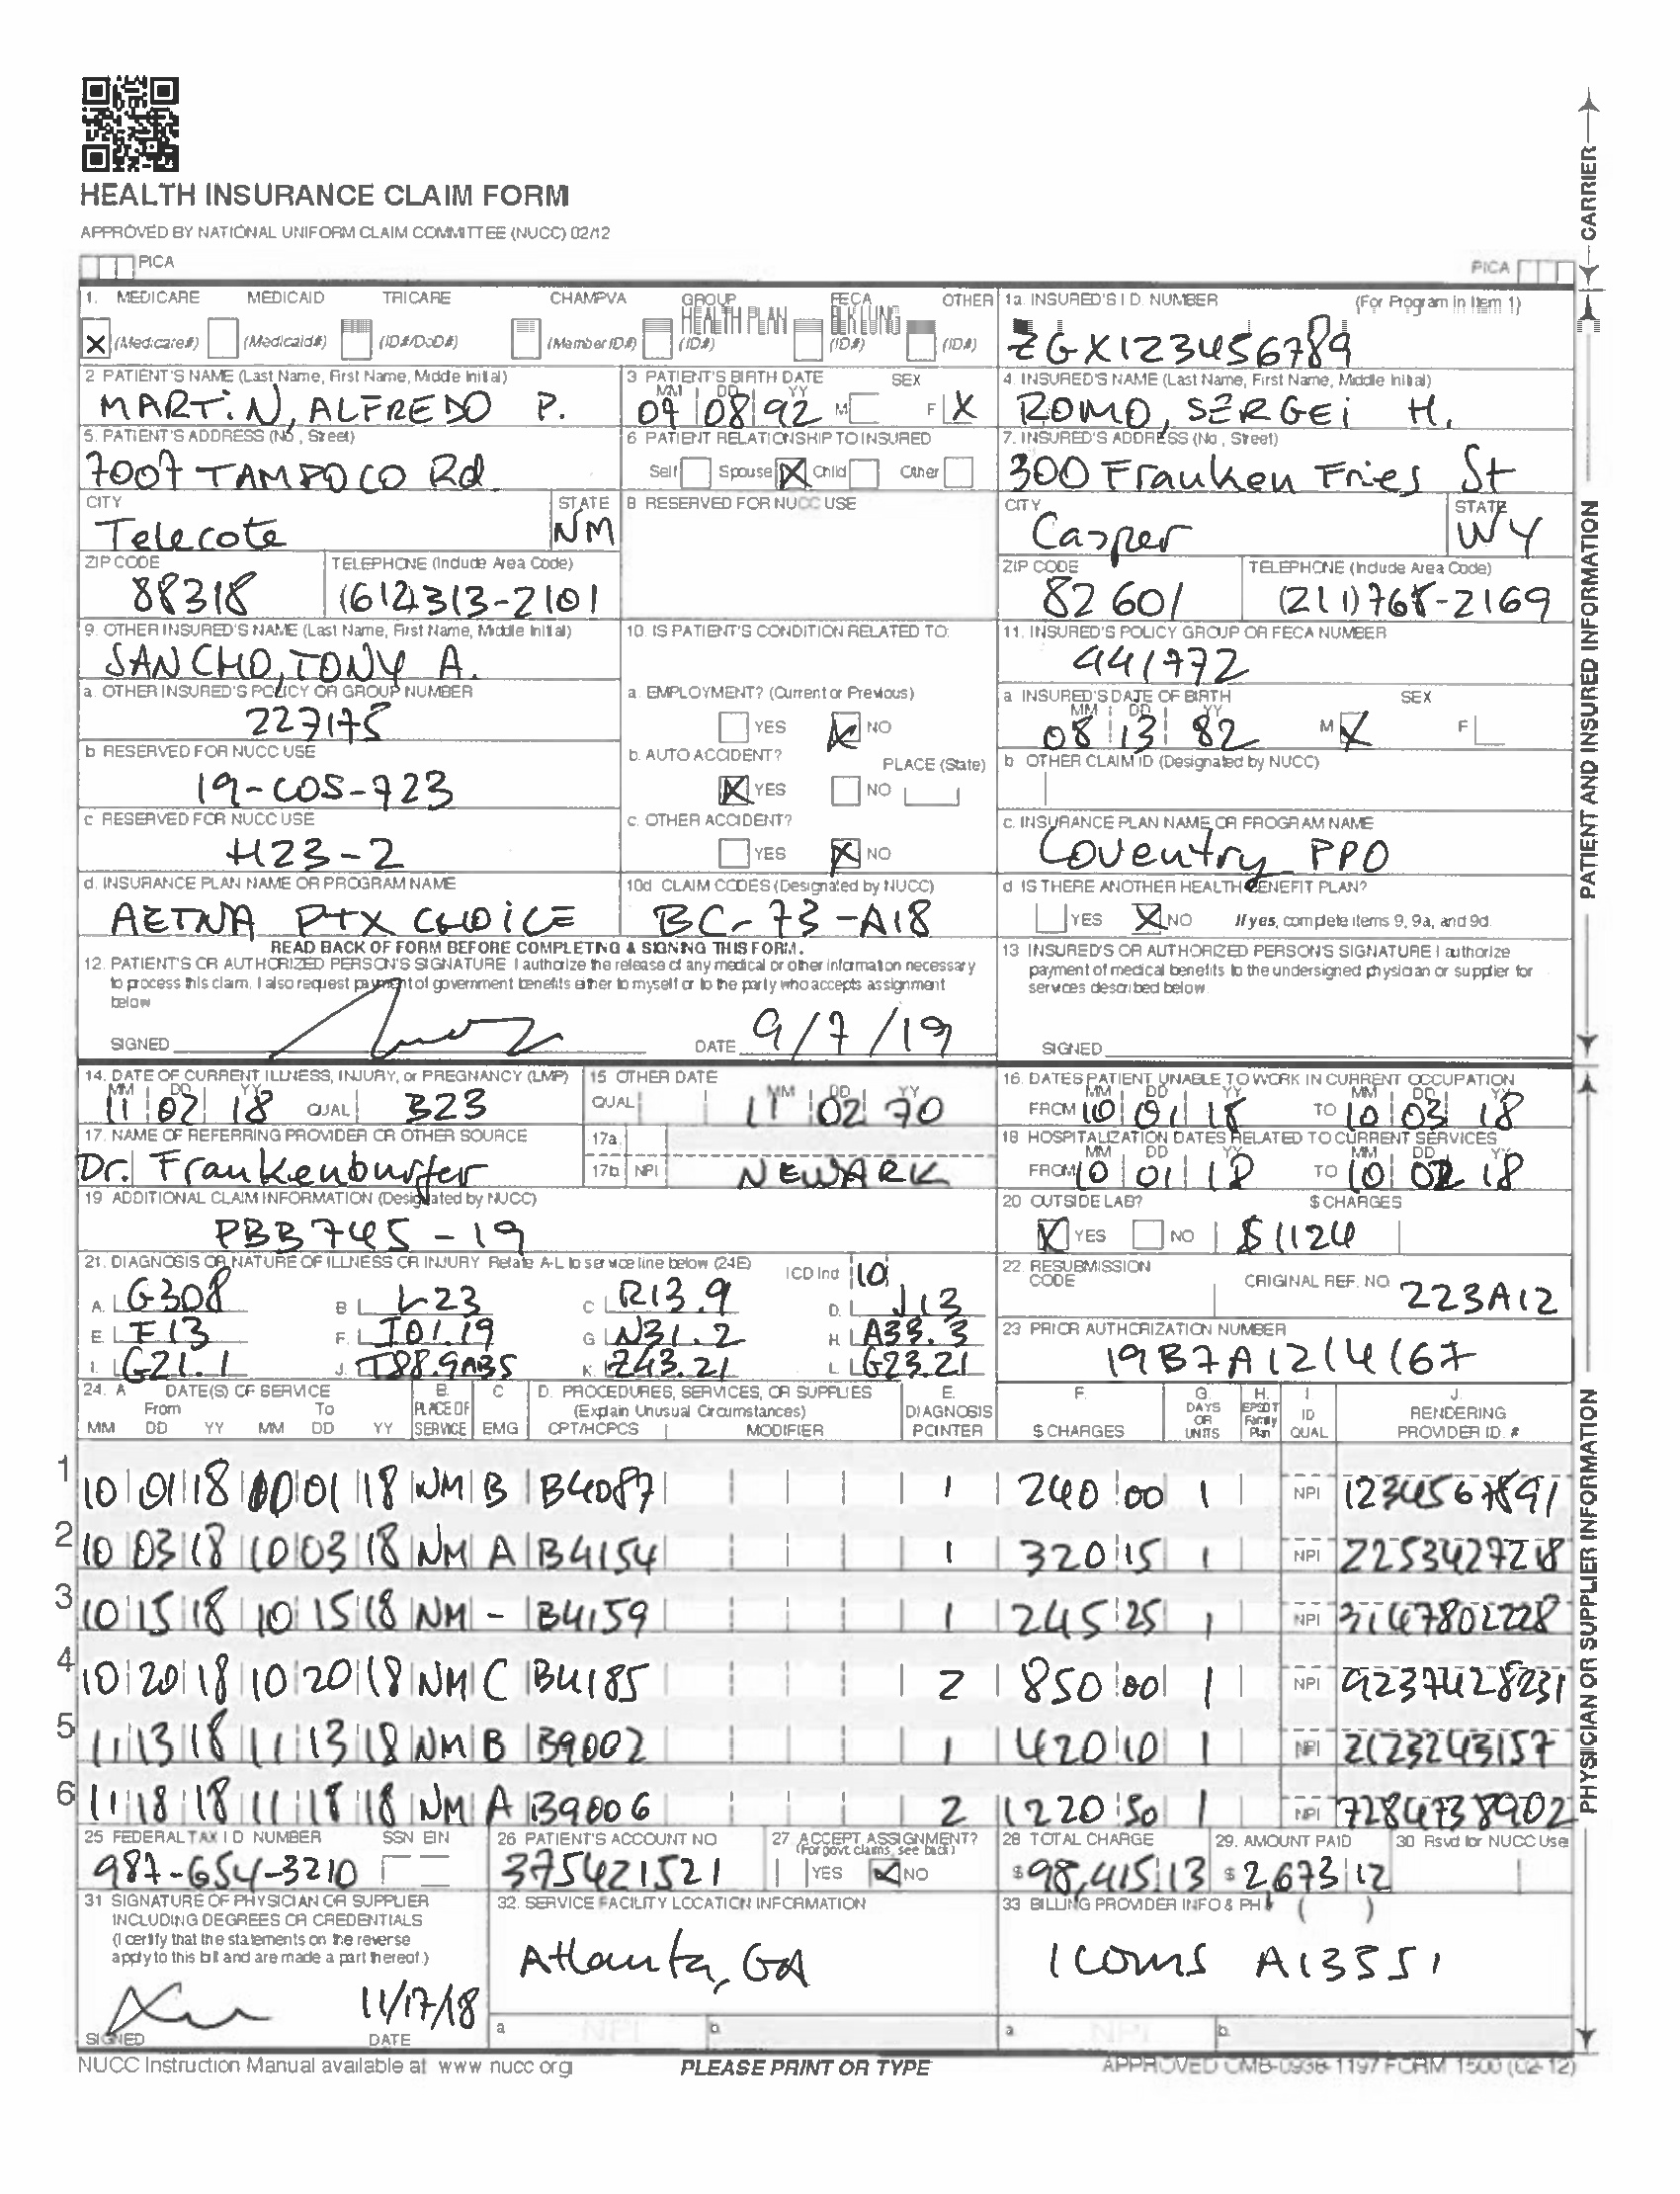 HEALTH INSURANCE CLAIM FORM
APPROVED BY NATIONAL UNIFORM CLAIM COMMITTEE (NUCC) 02/12
PICA PICA
CARRIER
1. MEDICARE MEDICAID TRICARE CHAMPVA GROUP HEALTH PLAN FECA BLK LUNG OTHER
X (Medicare#) (Medicaid#) (ID#/DoD#) (Member ID#) (ID#) (ID#) (ID#)
1a. INSURED'S I.D. NUMBER (For Program in Item 1)
ZGX123456789
2 PATIENT'S NAME (Last Name, First Name, Middle Initial)
MARTIN, ALFREDO P.
3 PATIENT'S BIRTH DATE SEX
MM DD YY
08 92 M F X
4. INSURED'S NAME (Last Name, First Name, Middle Initial)
ROMO, SERGEI H.
5. PATIENT'S ADDRESS (No, Street)
7007 TAMPOCO Rd.
6 PATIENT RELATIONSHIP TO INSURED
Self Spouse X Child Other
7. INSURED'S ADDRESS (No, Street)
300 Franken Fries St
CITY STATE
Telecote NM
8 RESERVED FOR NUCC USE
CITY STATE
Casper WY
ZIP CODE TELEPHONE (Include Area Code)
88318 (612)313-2101
ZIP CODE TELEPHONE (Include Area Code)
82601 (211)768-2169
9. OTHER INSURED'S NAME (Last Name, First Name, Middle Initial)
SANCHO, TONY A.
10. IS PATIENT'S CONDITION RELATED TO:
11. INSURED'S POLICY GROUP OR FECA NUMBER
441772
a. OTHER INSURED'S POLICY OR GROUP NUMBER
227175
a. EMPLOYMENT? (Current or Previous)
YES X NO
a INSURED'S DATE OF BIRTH SEX
MM DD YY
08 13 82 M X F
b RESERVED FOR NUCC USE
19-COS-723
b. AUTO ACCIDENT? PLACE (State)
X YES NO
b OTHER CLAIM ID (Designated by NUCC)
c RESERVED FOR NUCC USE
H23-2
c. OTHER ACCIDENT?
YES X NO
c. INSURANCE PLAN NAME OR PROGRAM NAME
Coventry PPO
d. INSURANCE PLAN NAME OR PROGRAM NAME
AETNA PTX CHOICE
10d CLAIM CODES (Designated by NUCC)
BC-73-A18
d IS THERE ANOTHER HEALTH BENEFIT PLAN?
YES X NO If yes, complete items 9, 9a, and 9d.
READ BACK OF FORM BEFORE COMPLETING & SIGNING THIS FORM.
12. PATIENT'S OR AUTHORIZED PERSON'S SIGNATURE I authorize the release of any medical or other information necessary
to process this claim. I also request payment of government benefits either to myself or to the party who accepts assignment
below
SIGNED DATE 9/7/19
13 INSURED'S OR AUTHORIZED PERSON'S SIGNATURE I authorize
payment of medical benefits to the undersigned physician or supplier for
services described below.
SIGNED
PATIENT AND INSURED INFORMATION
14. DATE OF CURRENT ILLNESS, INJURY, or PREGNANCY (LMP)
MM DD YY
11 02 18 QUAL B23
15 OTHER DATE
QUAL MM DD YY
11 02 70
16. DATES PATIENT UNABLE TO WORK IN CURRENT OCCUPATION
MM DD YY MM DD YY
FROM 10 01 18 TO 10 03 18
17. NAME OF REFERRING PROVIDER OR OTHER SOURCE
Dr. Frankenburger
17a.
17b NPI NEWARK
18 HOSPITALIZATION DATES RELATED TO CURRENT SERVICES
MM DD YY MM DD YY
FROM 10 01 18 TO 10 02 18
19 ADDITIONAL CLAIM INFORMATION (Designated by NUCC)
PBB745-19
20 OUTSIDE LAB? $ CHARGES
X YES NO $1124
21. DIAGNOSIS OR NATURE OF ILLNESS OR INJURY Relate A-L to service line below (24E) ICD Ind 10
A. G308 B L23 C R13.9 D. J13
E F13 F. I01.19 G N31.2 H. A33.3
I. G21.1 J. T88.9AB5 K. Z43.21 L. G23.21
22. RESUBMISSION CODE ORIGINAL REF. NO
223A12
23 PRIOR AUTHORIZATION NUMBER
19B7A1214167
24. A DATE(S) OF SERVICE B. C D. PROCEDURES, SERVICES, OR SUPPLIES E. F. G. H. I J.
From To PLACE OF (Explain Unusual Circumstances) DIAGNOSIS DAYS OR UNITS EPSDT Family Plan ID QUAL RENDERING
MM DD YY MM DD YY SERVICE EMG CPT/HCPCS MODIFIER POINTER $ CHARGES PROVIDER ID. #
1 10 01 18 10 01 18 NM B B4087 1 240 00 1 NPI 1234567891
2 10 03 18 10 03 18 NM A B4154 1 320 15 1 NPI 2253427218
3 10 15 18 10 15 18 NM - B4159 1 245 25 1 NPI 3147802228
4 10 20 18 10 20 18 NM C B4185 2 850 00 1 NPI 9237428231
5 11 13 18 11 13 18 NM B B9002 1 420 10 1 NPI 2123243157
6 11 18 18 11 18 18 NM A B9006 2 1220 50 1 NPI 7284738902
25 FEDERAL TAX I D NUMBER SSN EIN
987-654-3210
26 PATIENT'S ACCOUNT NO
375421521
27. ACCEPT ASSIGNMENT?
(For govt. claims, see back)
YES X NO
28 TOTAL CHARGE
$ 98,415 13
29. AMOUNT PAID
$ 2673 12
30 Rsvd for NUCC Use
31 SIGNATURE OF PHYSICIAN OR SUPPLIER
INCLUDING DEGREES OR CREDENTIALS
(I certify that the statements on the reverse
apply to this bill and are made a part thereof.)
11/17/18
SIGNED DATE
32. SERVICE FACILITY LOCATION INFORMATION
Atlanta, GA
a NPI b.
33 BILLING PROVIDER INFO & PH # ( )
Icoms A13551
a NPI b.
PHYSICIAN OR SUPPLIER INFORMATION
NUCC Instruction Manual available at www nucc org
PLEASE PRINT OR TYPE
APPROVED OMB-0938-1197 FORM 1500 (02-12)